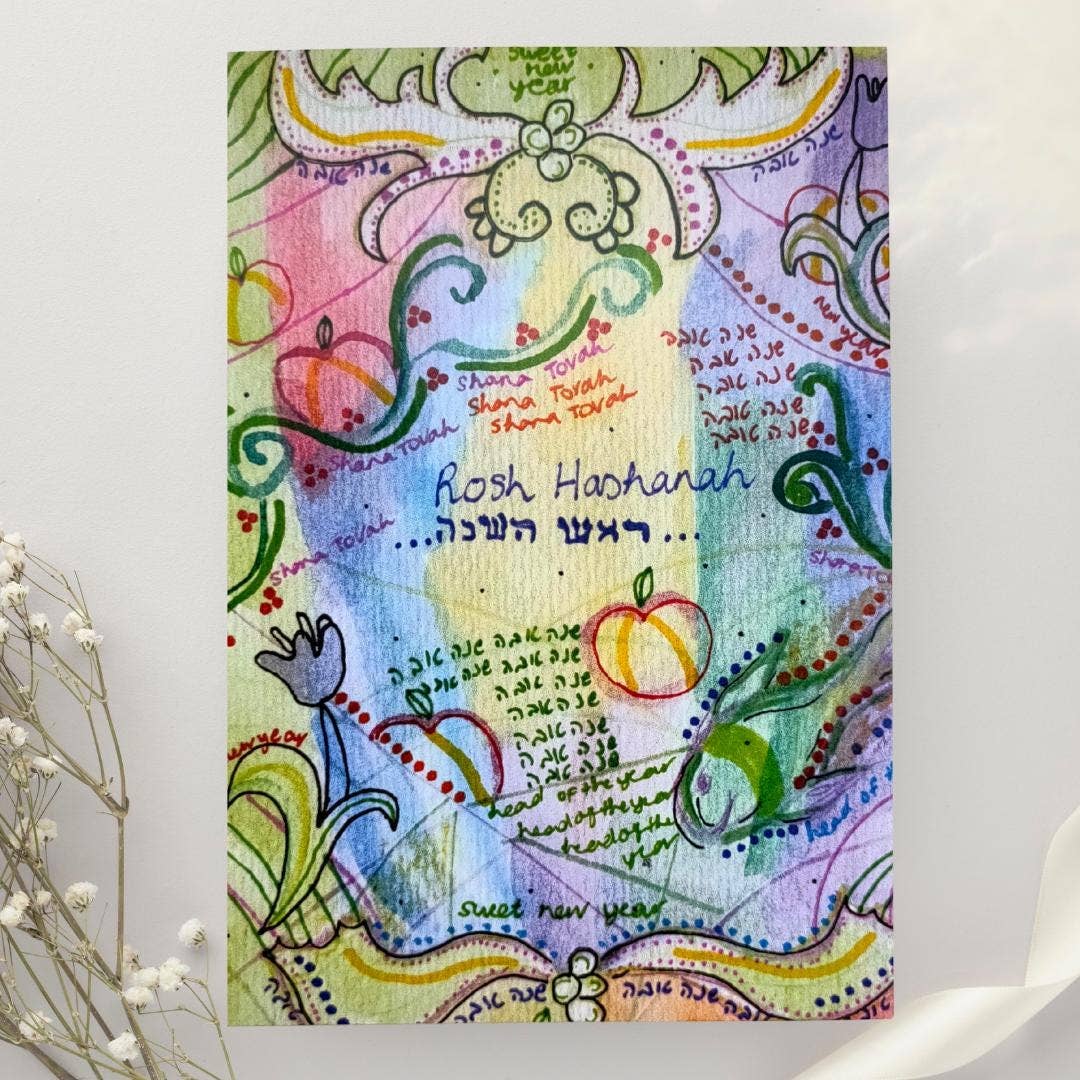 sweet
new
year
שנה טובה
שנה טובה
new year
שנה טובה
שנה טובה
שנה טובה
שנה טובה
שנה טובה
shana Tovah
shana Tovah
shana Tovah
shana Tovah
Rosh Hashanah
...ראש השנה...
shana Tovah
shana To
שנה טובה שנה טובה
שנה טובה שנה טובה
שנה טובה
שנה טובה
שנה טובה
שנה טובה
שנה טובה
year
head of the year
head of the year
head of the
year
head of th
sweet new year
שנה טובה
שנה טובה